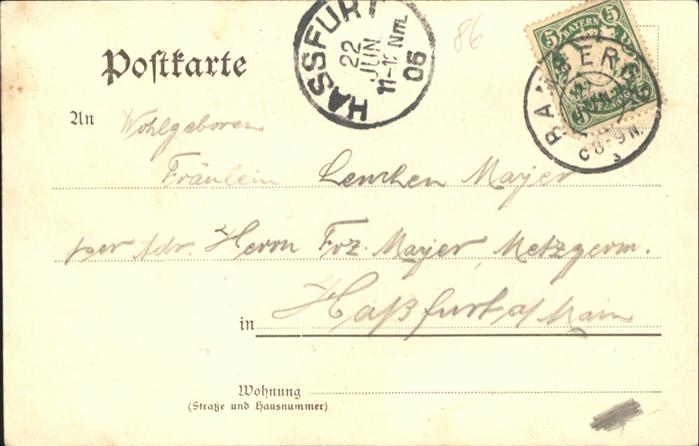 Postkarte
HASSFURT
22
JUN
11-12 Nm.
06
86
5 BAYERN 5
5 PFENNIG 5
BAMBERG
22 JUN
8-9 N.
3
An Wohlgeboren
Fräulein Lenchen Mayer
per Adr. Herrn Frz. Mayer, Metzgerm.
in Haßfurt a/Main
Wohnung
(Straße und Hausnummer)